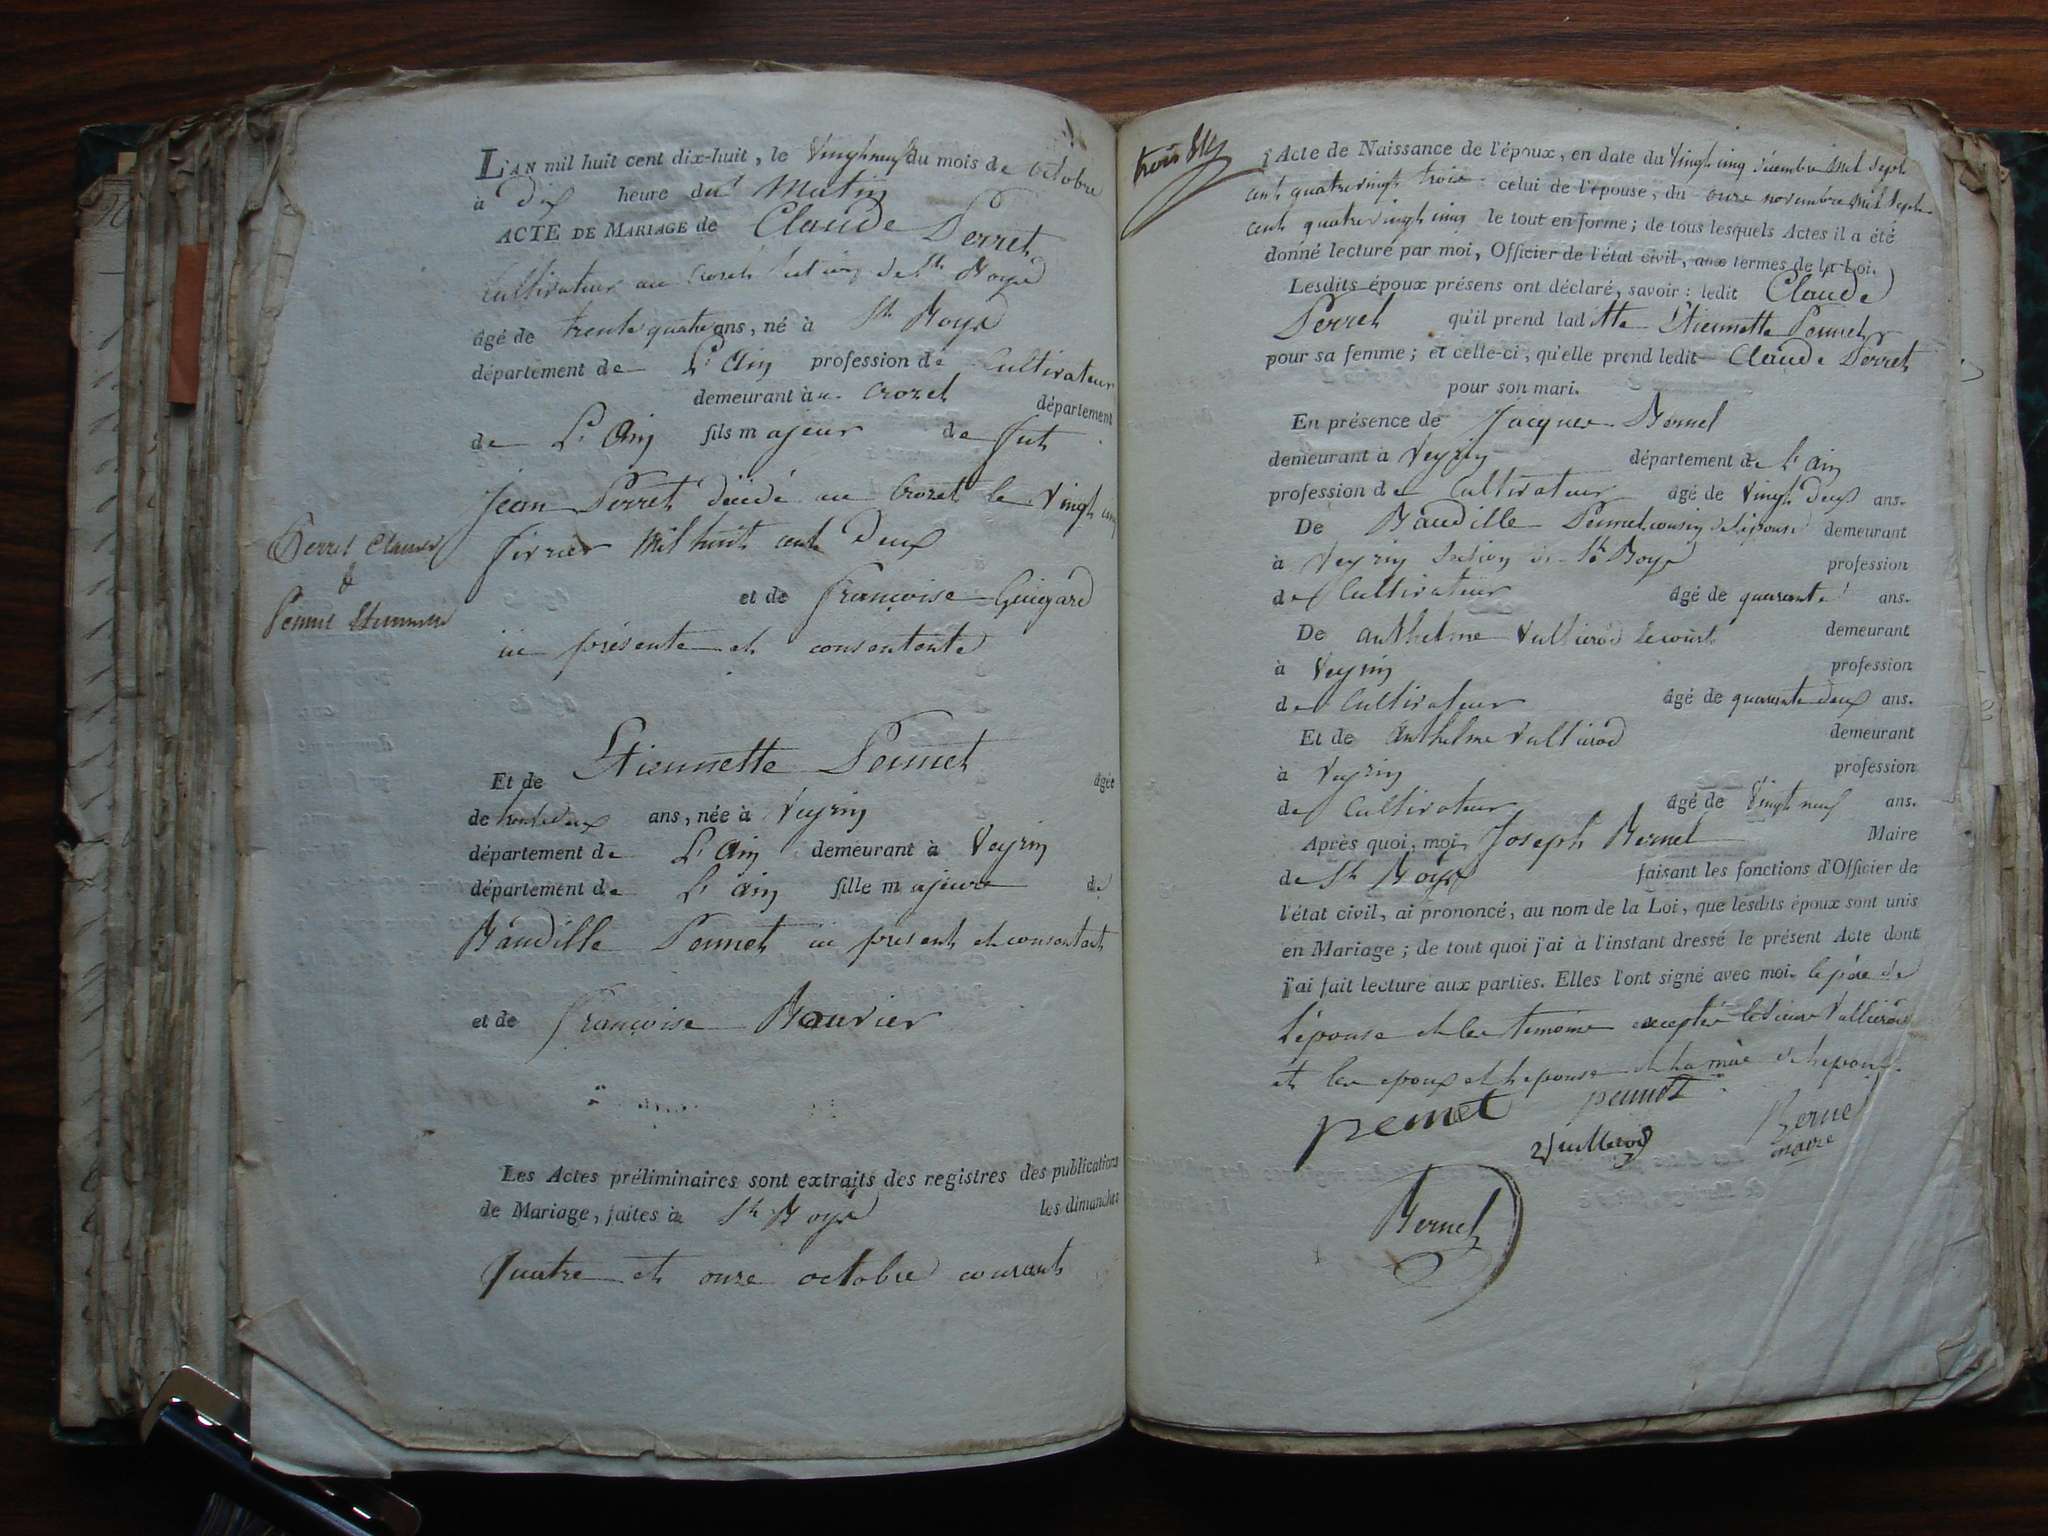 L'AN mil huit cent dix-huit, le Vingt neuf du mois de octobre
à dix heure du Matin
ACTE DE MARIAGE de Claude Perret
Cultivateur au Crozet Section de St Boys
âgé de trente quatre ans, né à St Boys
département de L'Ain profession de Cultivateur
demeurant à au Crozet département
de L'Ain fils majeur de fut
Jean Perret décédé au Crozet le Vingt cinq
fevrier Mil huit cent deux
Perret Claude
&
Pennet Etiennette
et de Françoise Guigard
ici présente et consentente
Et de Etiennette Pennet âgée
de trente deux ans, née à Veyrin
département de L'Ain demeurant à Veyrin
département de L'ain fille majeure de
Baudille Pennet ici présent et consentant
et de Francoise Bouvier
Les Actes préliminaires sont extraits des registres des publications
de Mariage, faites à St Boys les dimanches
Quatre et onze octobre courant
trois
Acte de Naissance de l'époux, en date du Vingt cinq décembre Mil Sept
cent quatrevingt trois celui de l'épouse, du onze novembre Mil Sept
cent quatrevingt cinq le tout en forme; de tous lesquels Actes il a été
donné lecture par moi, Officier de l'état civil, aux termes de la Loi.
Lesdits époux présens ont déclaré, savoir: ledit Claude
Perret qu'il prend laditte Etiennette Pennet
pour sa femme; et celle-ci, qu'elle prend ledit Claude Perret
pour son mari.
En présence de Jacques Bernet
demeurant à Veyrin département de L'Ain
profession de Cultivateur âgé de Vingt deux ans.
De Baudille Pennet cousin de l'épouse demeurant
à Veyrin Section de St Boys profession
de Cultivateur âgé de quarante ans.
De anthelme Vullierod demeurant
à Veyrin profession
de Cultivateur âgé de quarante deux ans.
Et de anthelme Vullierod demeurant
à Veyrin profession
de Cultivateur âgé de Vingt neuf ans.
Après quoi, moi, Joseph Bernet Maire
de St Boys faisant les fonctions d'Officier de
l'état civil, ai prononcé, au nom de la Loi, que lesdits époux sont unis
en Mariage; de tout quoi j'ai à l'instant dressé le présent Acte dont
j'ai fait lecture aux parties. Elles l'ont signé avec moi le père de
l'épouse et les temoins excepté Vullierod
et les epoux et l'epouse et la mère de l'epoux
pennet pennet Bernet
Vullierod maire
Bernet